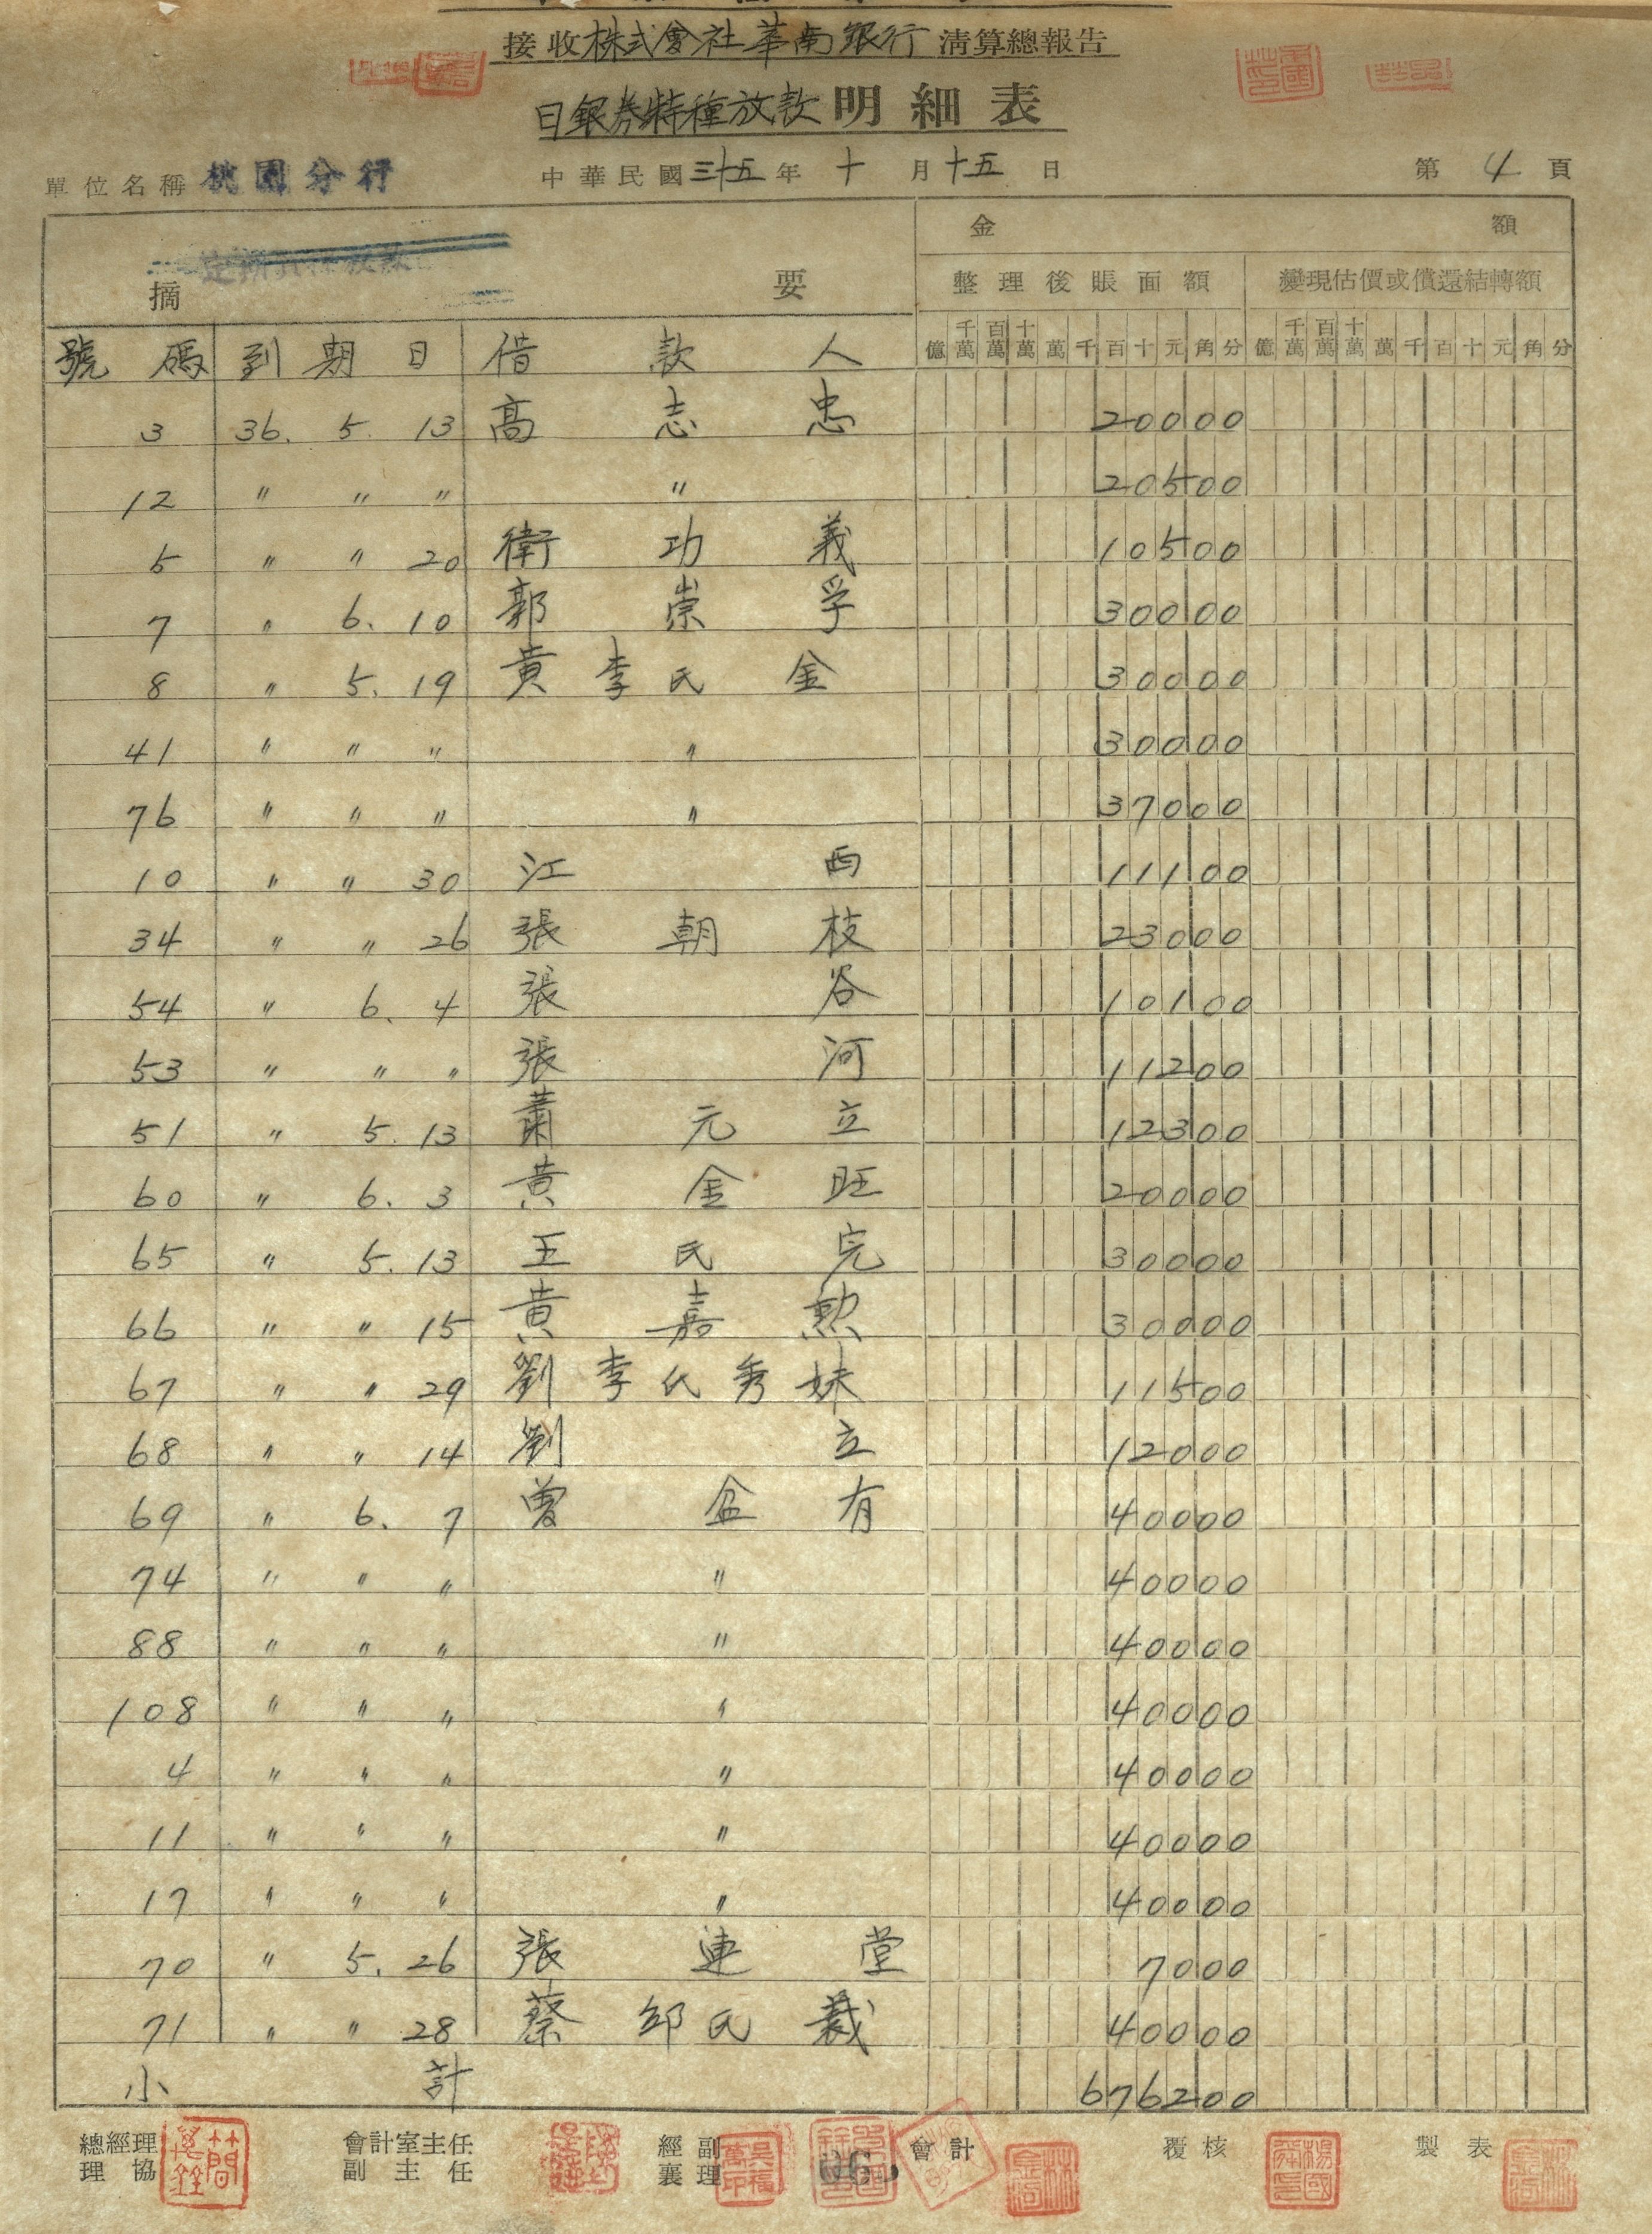 接收株式會社華南銀行清算總報告
日銀券特種放款明細表
單位名稱 桃園分行 中華民國三十五年十月十五日 第4頁
摘要 金額
整理後賬面額 變現估價或償還結轉額
億 千萬 百萬 十萬 萬 千 百 十 元 角 分 億 千萬 百萬 十萬 萬 千 百 十 元 角 分
號碼 到期日 借款人
3 36. 5. 13 高志忠 20000
12 〃 〃 〃 〃 20500
5 〃 〃 20 衛功義 10500
7 〃 6. 10 郭崇孚 30000
8 〃 5. 19 黃李氏金 30000
41 〃 〃 〃 〃 30000
76 〃 〃 〃 〃 37000
10 〃 〃 30 江西 11100
34 〃 〃 26 張朝枝 23000
54 〃 6. 4 張谷 10100
53 〃 〃 〃 張河 11200
51 〃 5. 13 蕭元立 12300
60 〃 6. 3 黃金旺 20000
65 〃 5. 13 王氏完 30000
66 〃 〃 15 黃嘉勲 30000
67 〃 〃 29 劉李氏秀妹 11500
68 〃 〃 14 劉立 12000
69 〃 6. 7 曾盆有 40000
74 〃 〃 〃 〃 40000
88 〃 〃 〃 〃 40000
108 〃 〃 〃 〃 40000
4 〃 〃 〃 〃 40000
11 〃 〃 〃 〃 40000
17 〃 〃 〃 〃 40000
70 〃 5. 26 張連堂 7000
71 〃 〃 28 蔡邱氏裁 40000
小計 676200
總經理 會計室主任 經副 會計 覆核 製表
理協 副主任 襄理